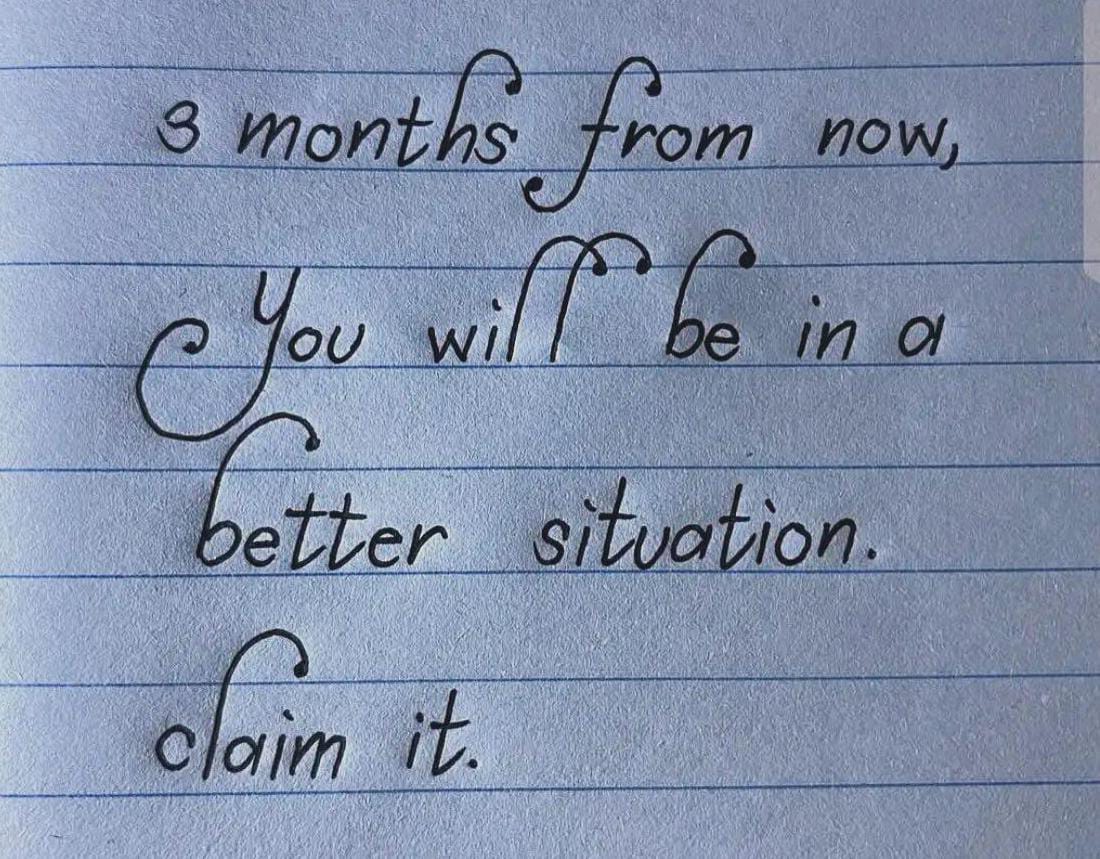 3 months from now,
You will be in a
better situation.
claim it.